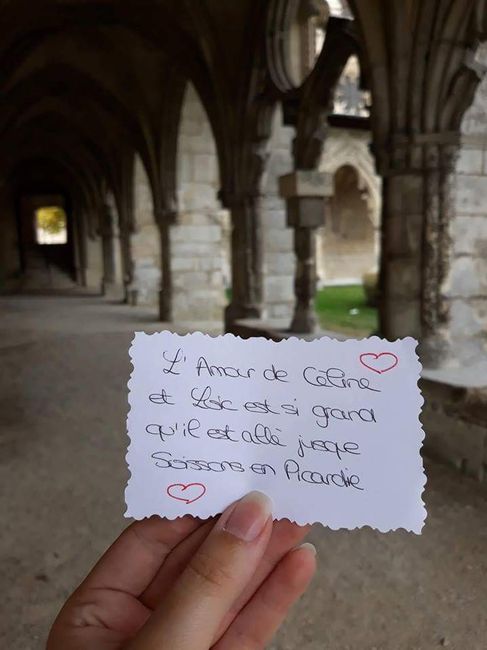 L'Amour de Céline
et Loïc est si grand
qu'il est allé jusque
Soissons en Picardie